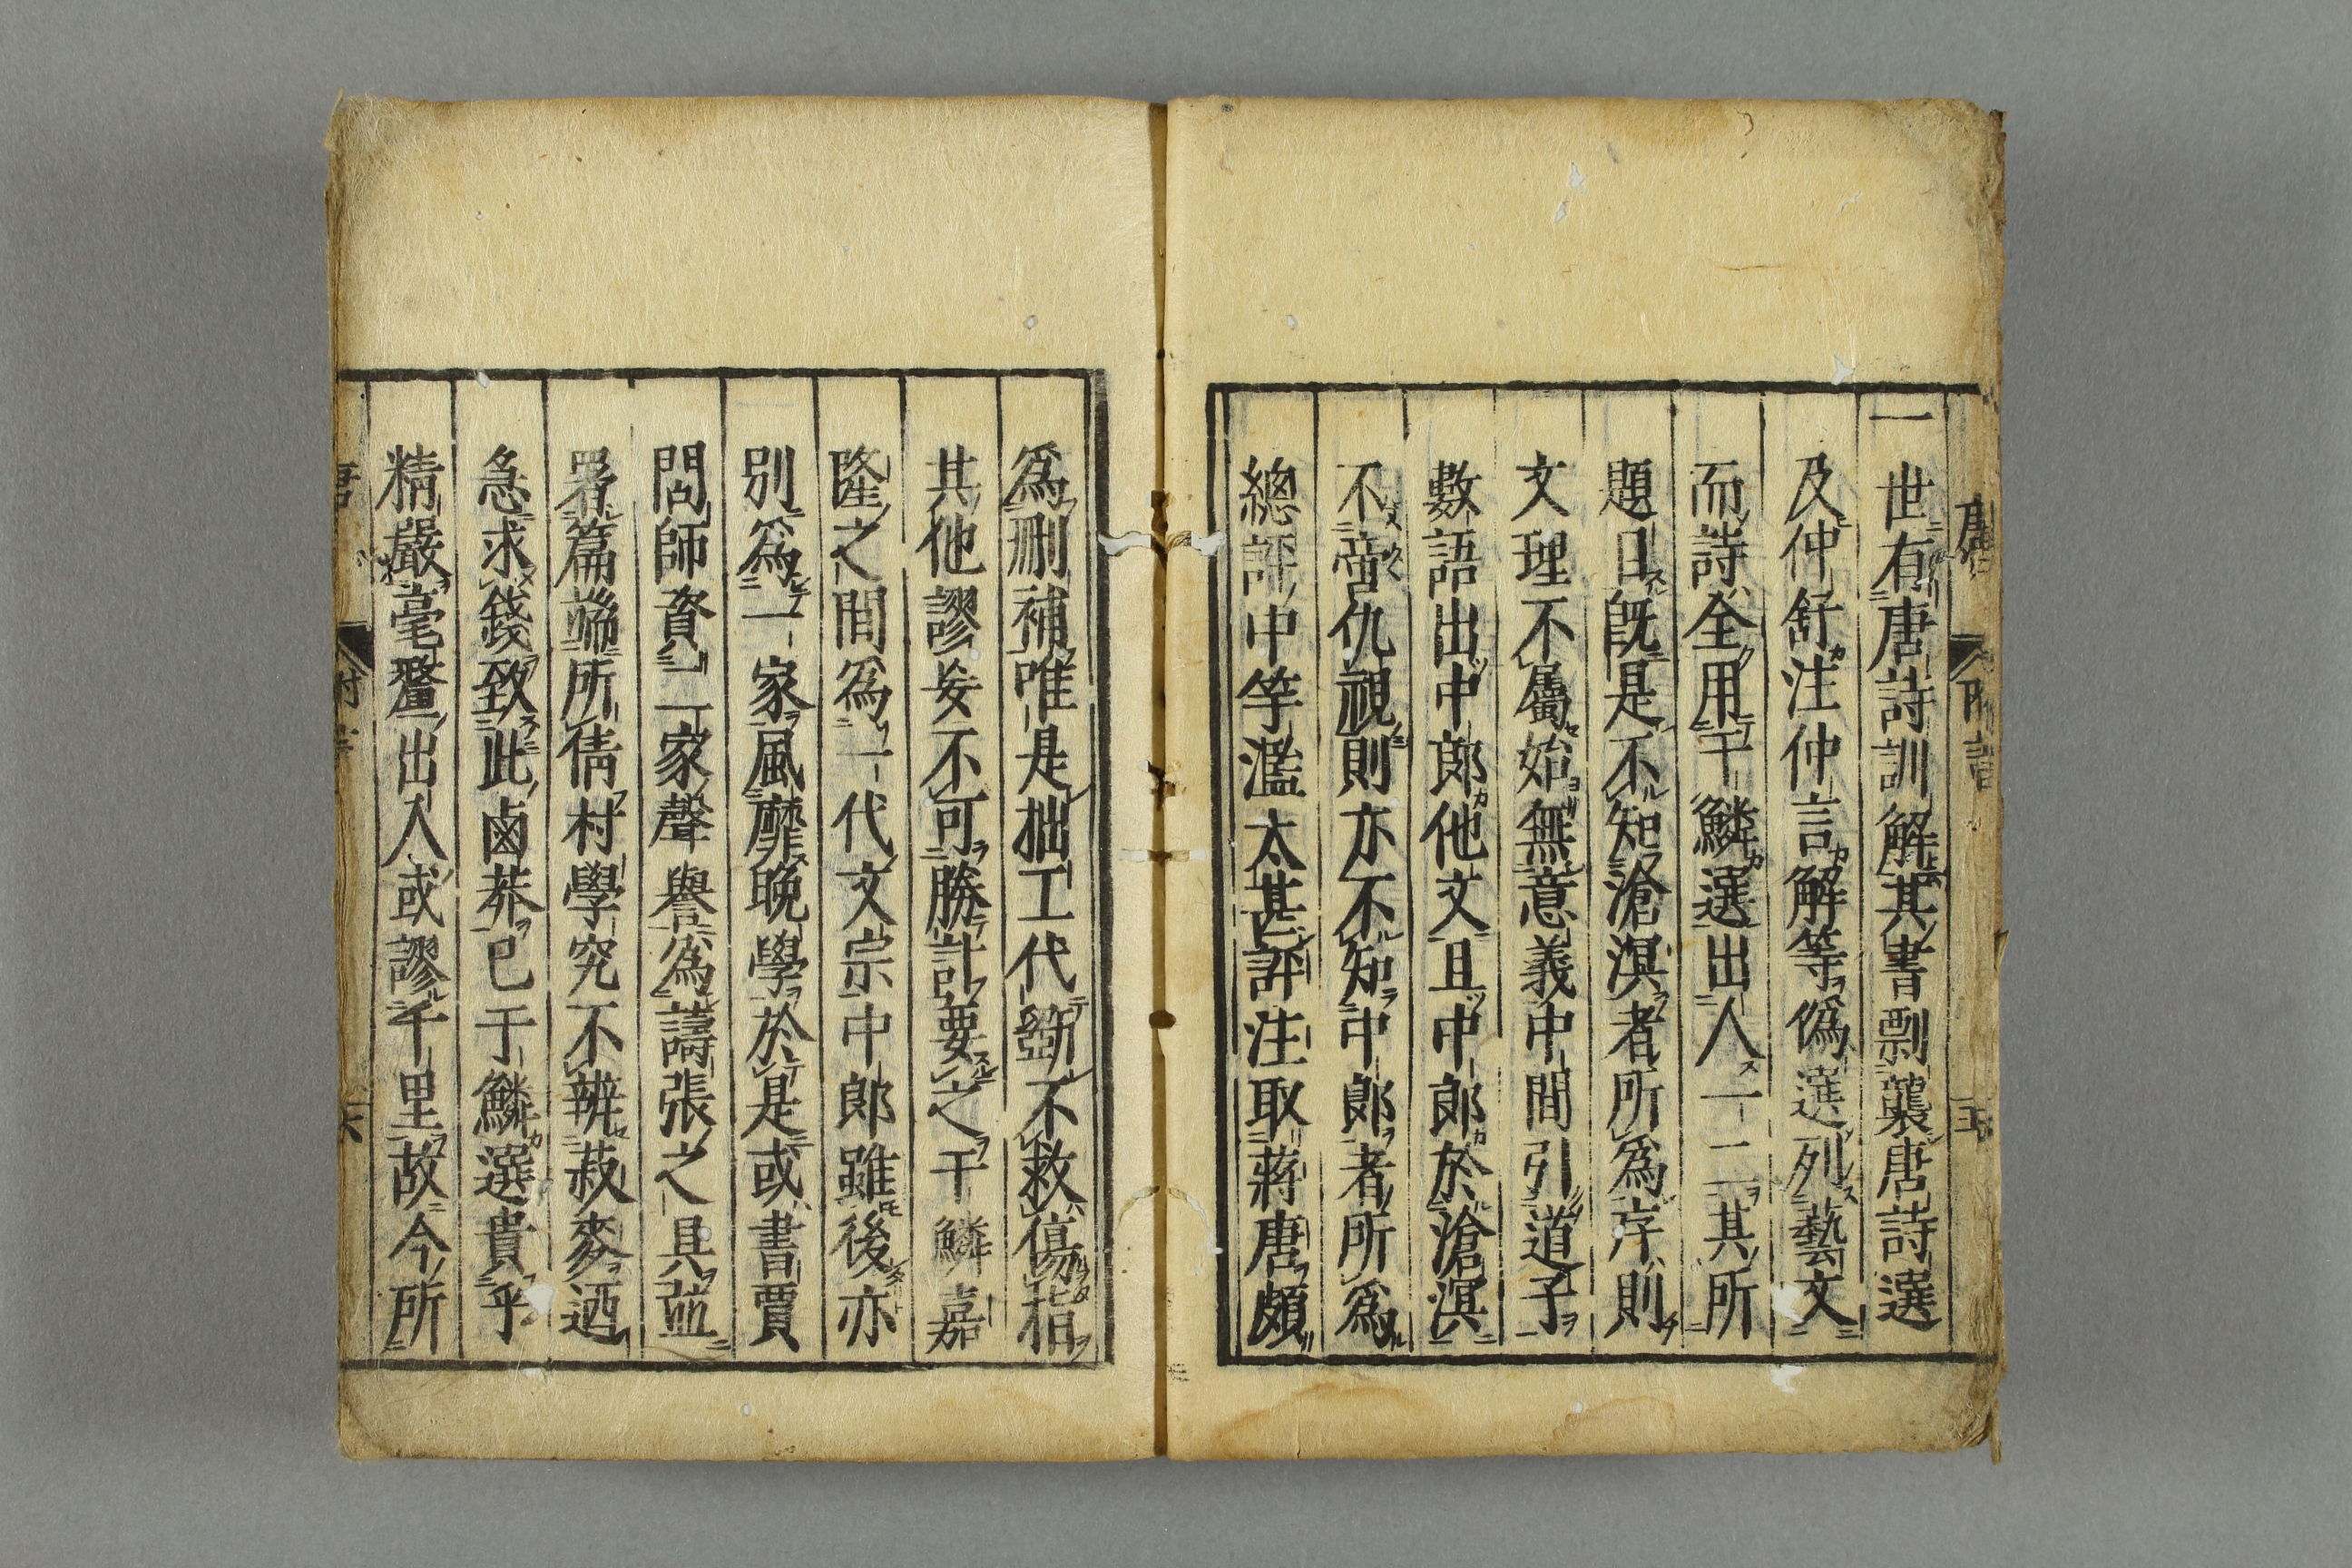 一世有唐詩訓解其書剽襲唐詩選
及仲舒注仲言解等偽選列藝文
而詩全用于鱗選出入一二其所
題曰既是不知滄溟者所爲序則
文理不屬始無意義中間引道子
數語出中郎他文且中郎於滄溟
不啻仇視則亦不知中郎者所爲
總評中等濫太甚評注取蔣唐頗
爲刪補唯是拙工代斲不救傷指
其他謬妄不可勝計要之于鱗嘉
隆之間爲一代文宗中郎雖後亦
別爲一家風靡晚學於是或書賈
問師資二家聲譽爲譸張之具並
署篇端所倩村學究不辨菽麥迺
急求錢致此鹵莽已于鱗選貴乎
精嚴毫釐出入或謬千里故今所